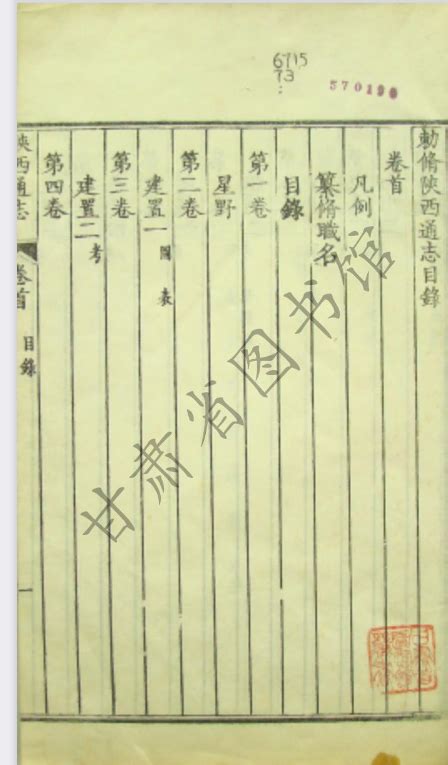 6715
73
570190
勅脩陝西通志目錄
卷首
凡例
纂脩職名
目錄
第一卷
星野
第二卷
建置一 圖 表
第三卷
建置二 考
第四卷
陝西通志 卷首 目錄 一
甘肃省图书馆